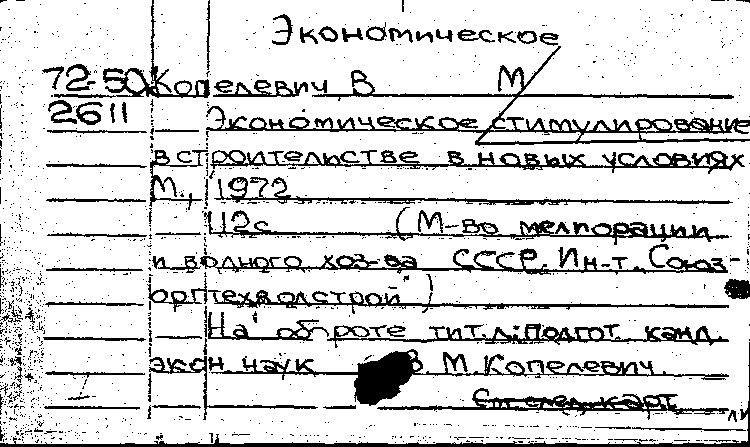 Экономическое
72-50 Копелевич В М
2611 Экономическое стимулирование
в строительстве в новых условиях
М., 1972.
112с (М-во мелиорации
и водного хоз-ва СССР. Ин-т. "Союз-
оргтехводстрой")
На обороте тит.л.: подгот. канд.
экон. наук В. М. Копелевич.
См. след. карт.